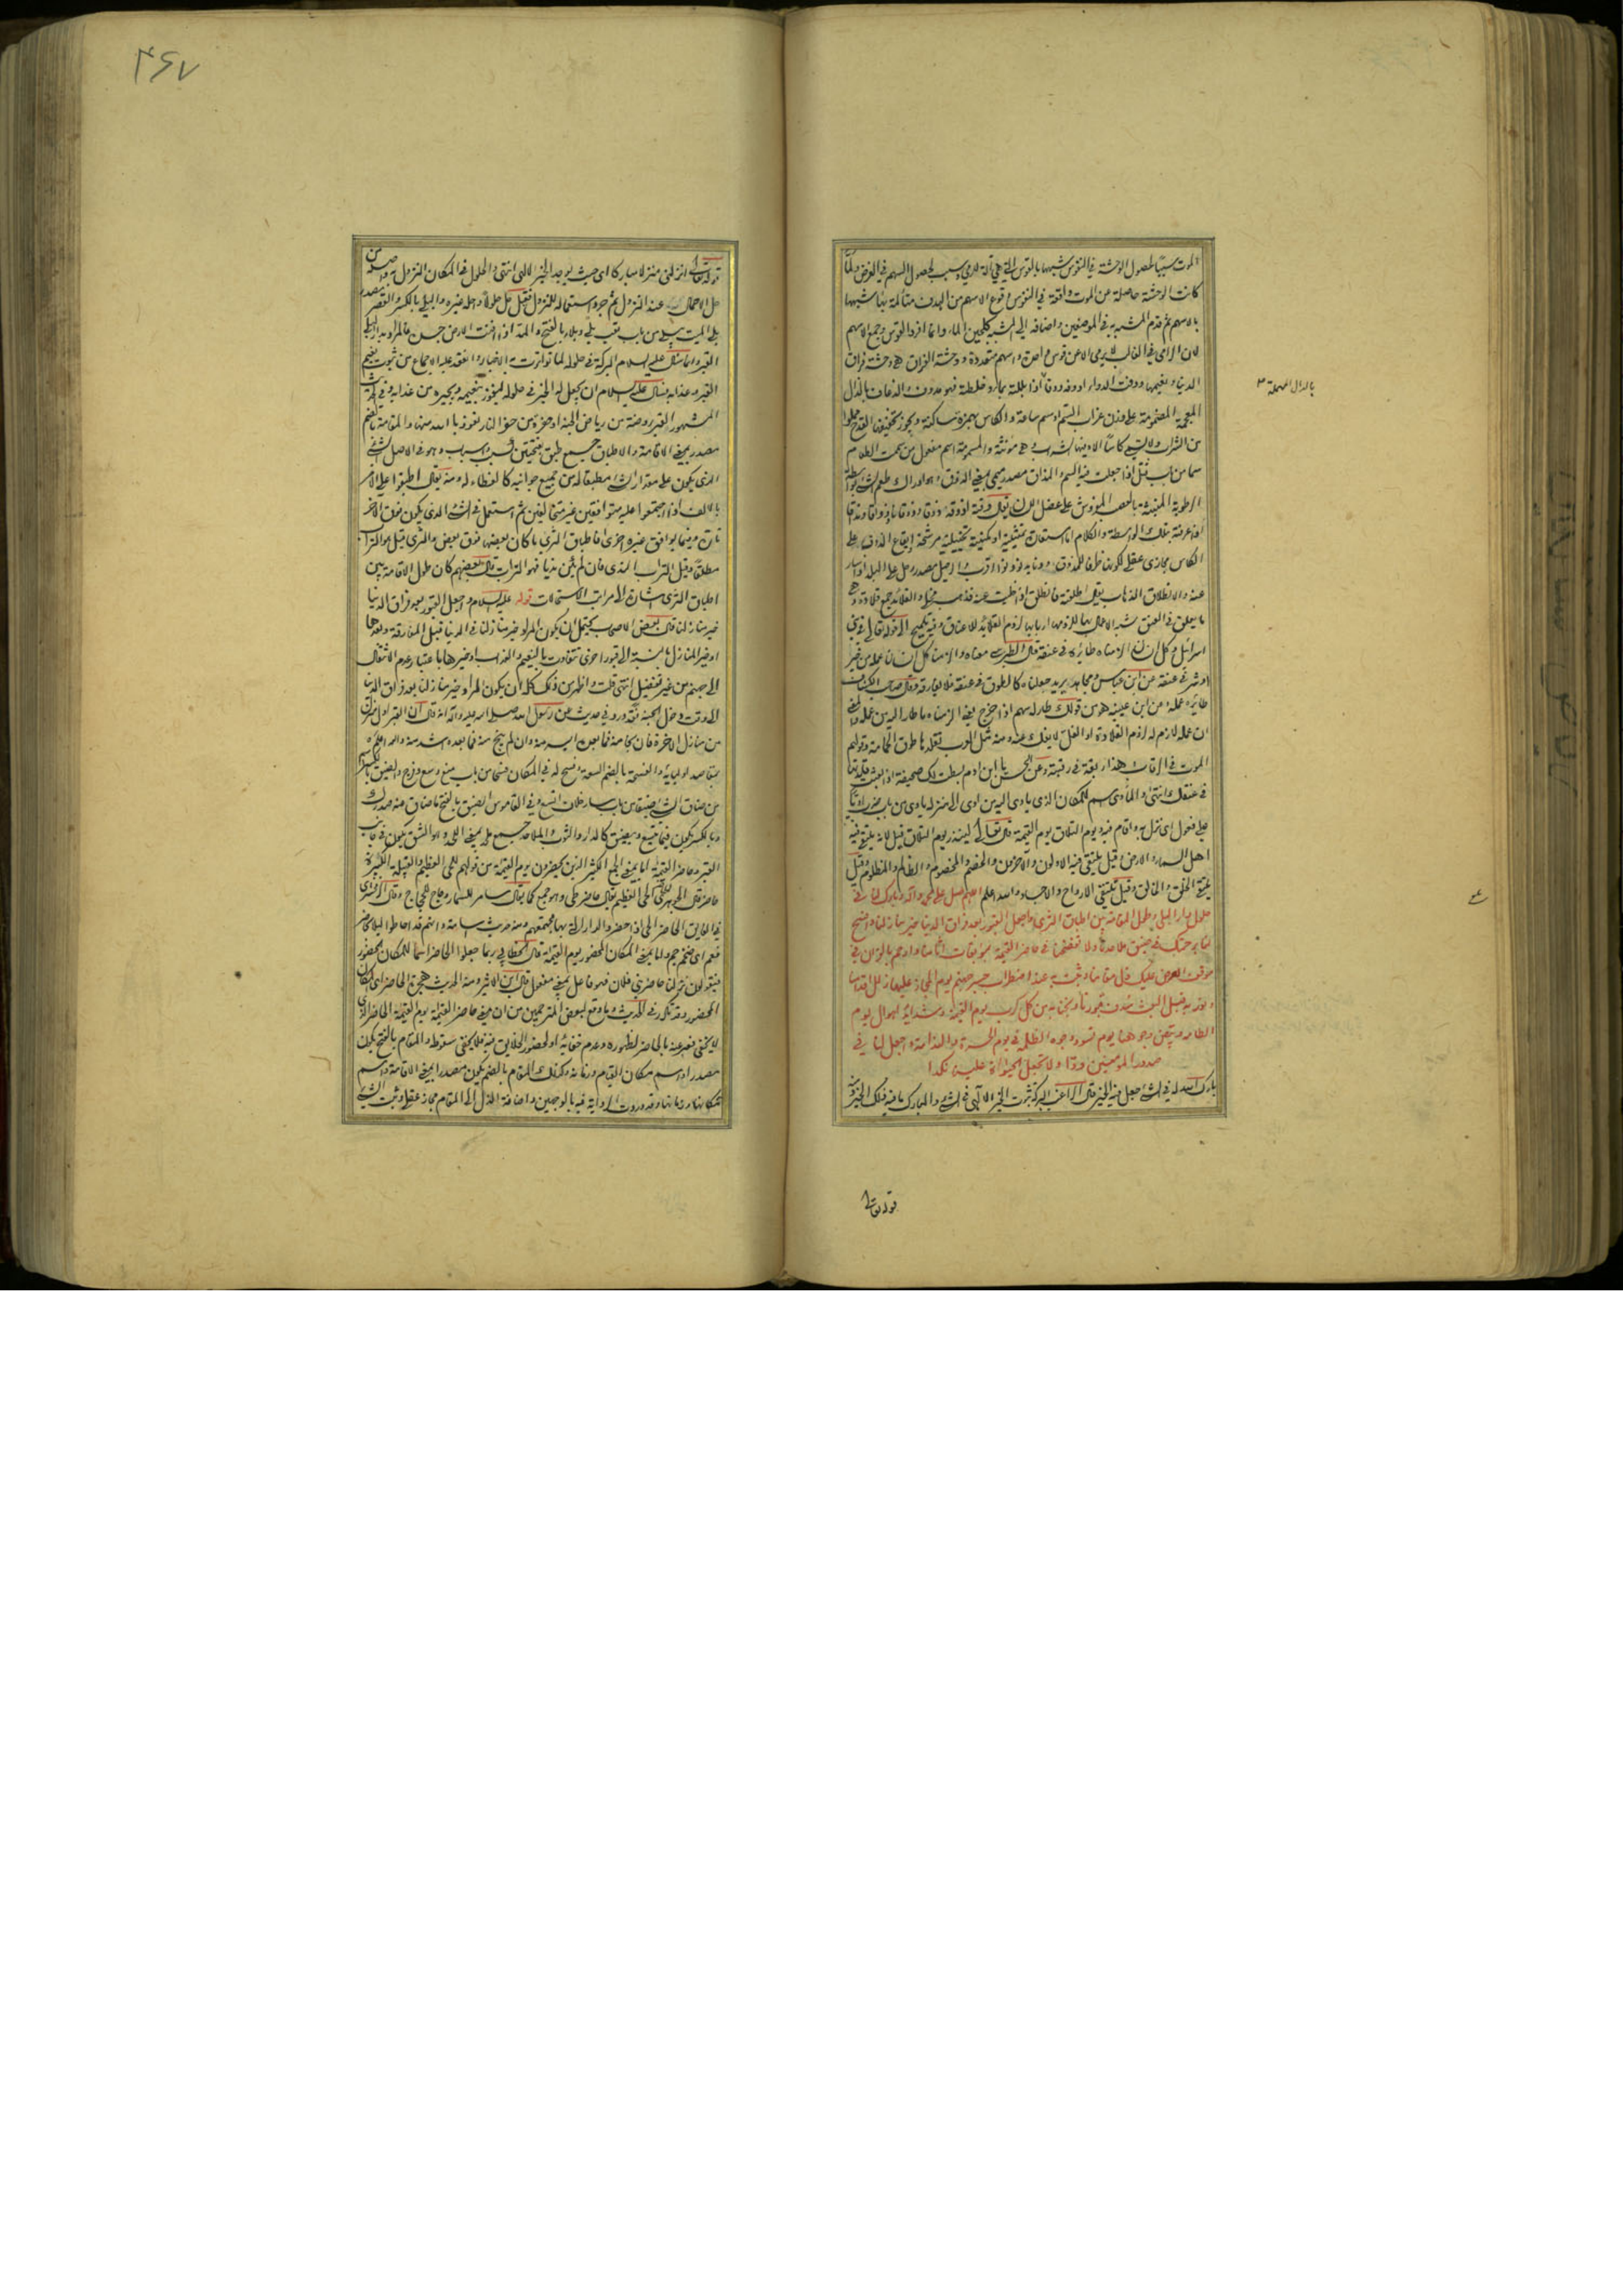 الموت سببا لحصول الوحشة في النفوس شبهها بالقوس التي هي آلة للرمي وسبب لحصول السهم في الغرض ولما
كانت الوحشة حاصلة عن الموت واقعة في النفوس وقوع الاسهم من الهدف متألمة بها شبهها
بالاسهم ثم قدم المشبه به في الموضعين واضافه الى المشبه كلجين الماء وانما افرد القوس وجمع الاسهم
لان الرامي في الغالب لا يرمي الا عن قوس واحدة واسهم متعددة ووحشة الفراق هي وحشة فراق
الدنيا ونعيمها ودفت الدواء اذا بللته بماء وخلطته فهو مدوف والذعاف بالذال
المعجمة المضمومة على وزن غراب السم او سم ساعة والكأس بهمزة ساكنة ويجوز تخفيفها القدح مملوا
من الشراب ولا تسمى كأسا الا وفيها الشراب وهي مؤنثة والمسمومة اسم مفعول من سممت الطعام
سما من باب قتل اذا جعلت فيه السم والمذاق مصدر ميمي بمعنى الذوق وهو ادراك طعم الشيء بواسطة
الرطوبة المنبثة بالعصب المفروش على عضل اللسان يقال ذقته اذوقه ذوقا وذوقانا وذواقا ومذاقا
اذا عرفته بتلك الواسطة والكلام اما استعارة تمثيلية او مكنية تخييلية مرشحة ايقاع الذعاف على
عنه والانطلاق الذهاب يقال اطلقته فانطلق اي خليت عنه فذهب والقلائد جمع قلادة وهي
ما يعلق في العنق شبه الاعمال بها للزومها اربابها لزوم القلائد للاعناق وفيه تلميح الى قوله تعالى في بني
اسرائيل وكل انسان الزمناه طائره في عنقه قال الطبرسي معناه والزمنا كل انسان عمله من خير
او شر في عنقه عن ابن عباس ومجاهد يريد جعلناه كالطوق في عنقه فلا يفارقه وقال صاحب الكشاف
طائره عمله وعن ابن عيينة هو من قولك طار له سهم اذا خرج يعني الزمناه ما طار اليه من عمله والمعنى
ان عمله لازم له لزوم القلادة او الغل لا يفك عنه ومنه مثل العرب تقلدها طوق الحمامة وقولهم
الموت في الرقاب وهذا ربقة في رقبته وعن الحسن يا ابن ادم بسطت لك صحيفة اذا بعثت قلدتها
في عنقك انتهى والمأوى اسم للمكان الذي يأوي اليه من اوى الى منزله ياوي من باب ضرب اويا
على فعول اي نزل به واقام فيه ويوم التلاق يوم القيمة قال تعالى لينذر يوم التلاق قيل لانه يلتقي فيه
اهل السماء والارض وقيل يلتقي فيه الاولون والآخرون والخصم والمخصوم والظالم والمظلوم وقيل
يلتقي الخلق والخالق وقيل تلتقي الارواح والاجساد والله اعلم اللهم صل على محمد وآله وبارك لنا في
حلول دار البلى وطول المقامة بين اطباق الثرى واجعل القبور بعد فراق الدنيا خير منازلنا وافسح
لنا برحمتك في ضيق ملاحدنا ولا تفضحنا في حاضر القيمة بموبقات آثامنا وارحم بالقران في
موقف العرض عليك ذل مقامنا وثبت به عند اضطراب جسر جهنم يوم المجاز عليها زلل اقدامنا
ونور به قبل البعث سدف قبورنا ونجنا به من كل كرب يوم القيمة وشدائد اهوال يوم
الطامة وبيض وجوهنا يوم تسود وجوه الظلمة في يوم الحسرة والندامة واجعل لنا في
صدور المؤمنين ودا ولا تجعل الحيوة علينا نكدا
بارك الله له في الشيء جعل فيه الخير قال الراغب البركة ثبوت الخير الالهي في الشيء والمبارك ما فيه ذلك الخير
قوله تعالى
بالدال المهملة
٤٦٧
قوله تعالى انزلني منزلا مباركا اي حيث يوجد الخير الالهي انتهى والحلول في المكان النزول به واصله من
حل الاحمال عند النزول ثم جرد استعماله للنزول فقيل حل حلولا واحله غيره والبلى بالكسر والقصر مصدر
بلي الميت يبلى من باب تعب بلى وبلاء بالفتح والمد اذا افنت الارض جسمه
القبر وانما سئل عليه السلام البركة في حلوله لما تواترت به الاخبار وانعقد عليه الاجماع من ثبوت نعيم
القبر وعذابه فسأل عليه السلام ان يجعل له الخير في حلوله ليفوز بنعيمه ويجيره من عذابه وفي الحديث
المشهور القبر روضة من رياض الجنة او حفرة من حفر النار نعوذ بالله منها والمقامة بالضم
مصدر بمعنى الاقامة والاطباق جمع طبق بفتحتين كسبب واسباب وهو في الاصل الشيء
الذي يكون على مقدار الشيء مطبقا له من جميع جوانبه كالغطاء له ومنه يقال اطبقوا على الامر
بالالف اذا اجتمعوا عليه متوافقين غير متخالفين ثم استعمل في الشيء الذي يكون فوق الآخر
تارة وفيما يوافق غيره اخرى فاطباق الثرى ما كان بعضها فوق بعض والثرى قيل هو التراب
مطلقا وقيل التراب الندي فان لم يكن نديا فهو التراب قال بعضهم كان طول الاقامة بين
اطباق الثرى اشارة الى مراتب الاستحالات قوله عليه السلام واجعل القبور بعد فراق الدنيا
خير منازلنا قال بعض الاصحاب يحتمل ان يكون المراد خير منازلنا في الدنيا قبل المفارقة وبعدها
او خير المنازل بالنسبة الى قبور اخرى تتفاوت بالنعيم والعذاب او خيرها باعتبار عدم الانتقال
الى جهنم من غير تفضيل انتهى قلت واظهر من ذلك كله ان يكون المراد خير منازلنا بعد فراق الدنيا
الى وقت دخول الجنة فقد ورد في حديث عن رسول الله صلى الله عليه وآله انه قال ان القبر اول منزل
من منازل الاخرة فان نجا منه فما بعده ايسر منه وان لم ينج منه فما بعده اشد منه والله اعلم
بمقاصد اوليائه والفسحة بالضم السعة وفسح له في المكان فسحا من باب منع وسع وفرج والضيق بالكسر اسم
من ضاق الشيء ضيقا من باب سار خلاف اتسع وفي القاموس الضيق بالفتح ما ضاق عنه صدرك
وبالكسر يكون فيما يتسع ويضيق كالدار والثوب والملاحد جمع ملحد بمعنى اللحد وهو الشق يكون في جانب
القبر وحاضر القيمة اما بمعنى الجمع الكثير الذين يحضرون يوم القيمة من قولهم للحي العظيم والقبيلة الكبيرة
حاضر قال الجوهري الحي العظيم يقال حاضر طي وهو جمع كما يقال سامر للسمار وحاج للحجاج وقال الزمخشري
في الفايق الحاضر الحي اذا حضروا الدار التي بها مجتمعهم ومنه حديث اسامة وانهم قد احاطوا ليلا بحاضر
فعم اي ضخم جم واما بمعنى المكان المحضور يوم القيمة قال الخطابي ربما جعلوا الحاضر اسما للمكان المحضور
فيقولون نزلنا حاضر بني فلان فهو فاعل بمعنى مفعول قال ابن الاثير ومنه الحديث هجرة الحاضر اي المكان
المحضور وقد تكرر في الحديث وما وقع لبعض المترجمين من ان معنى حاضر القيمة يوم القيمة الحاضر الذي
لا يخفى فعبر عنه بالحاضر لظهوره وعدم خفائه او لحضور الخلايق فيه فلا يخفى سقوطه والمقام بالفتح يكون
مصدرا واسم مكان القيام وزمانه وكذلك المقام بالضم يكون مصدرا بمعنى الاقامة واسم
لمكانها وزمانها وقد وردت الرواية فيه بالوجهين واضافة الذل الى المقام مجاز عقلي وثبت الشيء